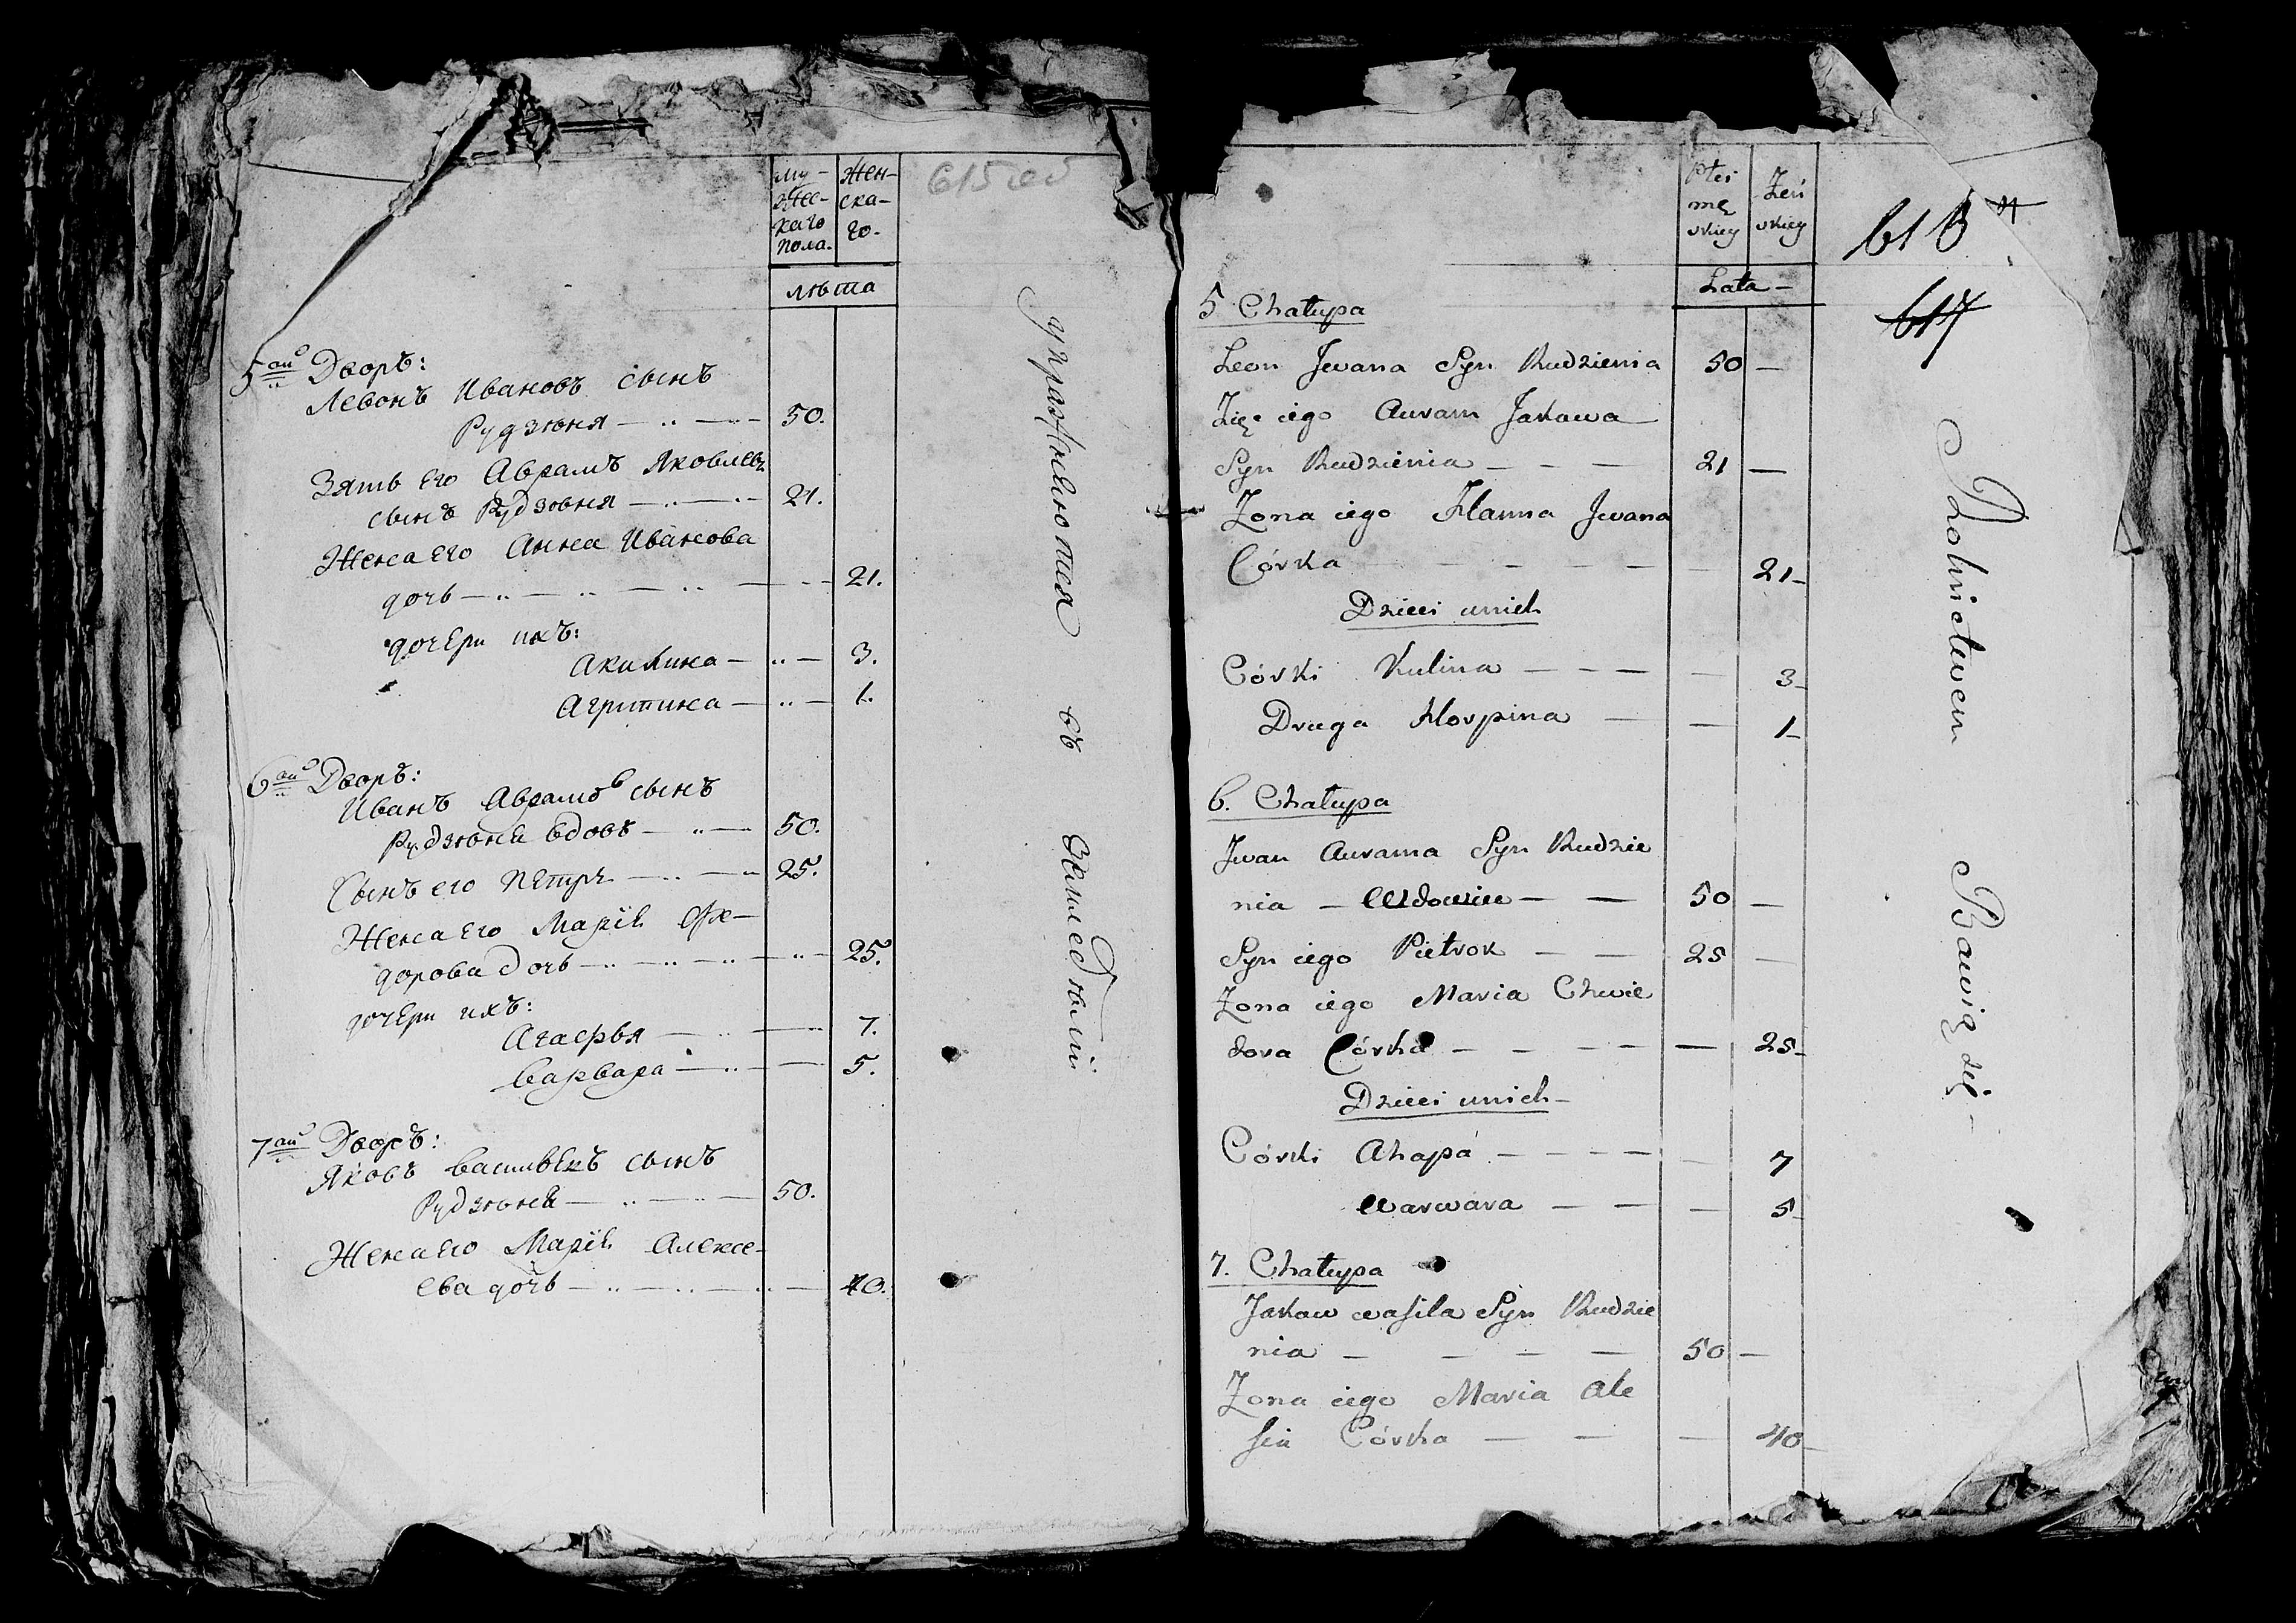 му-
жес-
каго
пола.
жен-
ска-
го.
лѣта
615 об
5ый Дворъ:
Левонъ Ивановъ сынъ
Рудзюня — 50.
Зять его Аврамъ Яковлевъ
сынъ Рудзюня — 21.
Жена его Анна Иванова
дочь — 21.
дочери ихъ:
Акилина — 3.
Агрипина — 1.
6ый Дворъ:
Иванъ Аврамовъ сынъ
Рудзюня вдовъ — 50.
Сынъ его Петръ — 25.
Жена его Марія Фе-
дорова дочь — 25.
дочери ихъ:
Агафья — 7.
Варвара — 5.
7ый Дворъ:
Яковъ Васильевъ сынъ
Рудзюня — 50.
Жена его Марія Алексе-
ева дочь — 40.
упражняются въ земледѣліи
Płci
mę
skiey
Żeń
skiey
Lata —
616
617
5 Chałupa
Leon Jwana Syn Rudzienia 50 —
Zięć iego Auram Jakowa
Syn Rudzienia — — — 21 —
Żona iego Hanna Jwana
Córka — — — — — 21 —
Dzieci unich
Córki Kulina — — — — 3 —
Druga Horpina — — 1 —
6. Chałupa
Jwan Aurama Syn Rudzie
nia — Wdowiec — — 50 —
Syn iego Pietrok — — 25 —
Żona iego Maria Chwie
dora Córka — — — — — 25 —
Dzieci unich —
Córki Ahapa — — — — — 7
Warwara — — — 5 —
7. Chałupa
Jakow Wasila Syn Rudzie
nia — — — — 50 —
Żona iego Maria Ale
sia Córka — — — 40 —
Rolnictwem Bawią się —